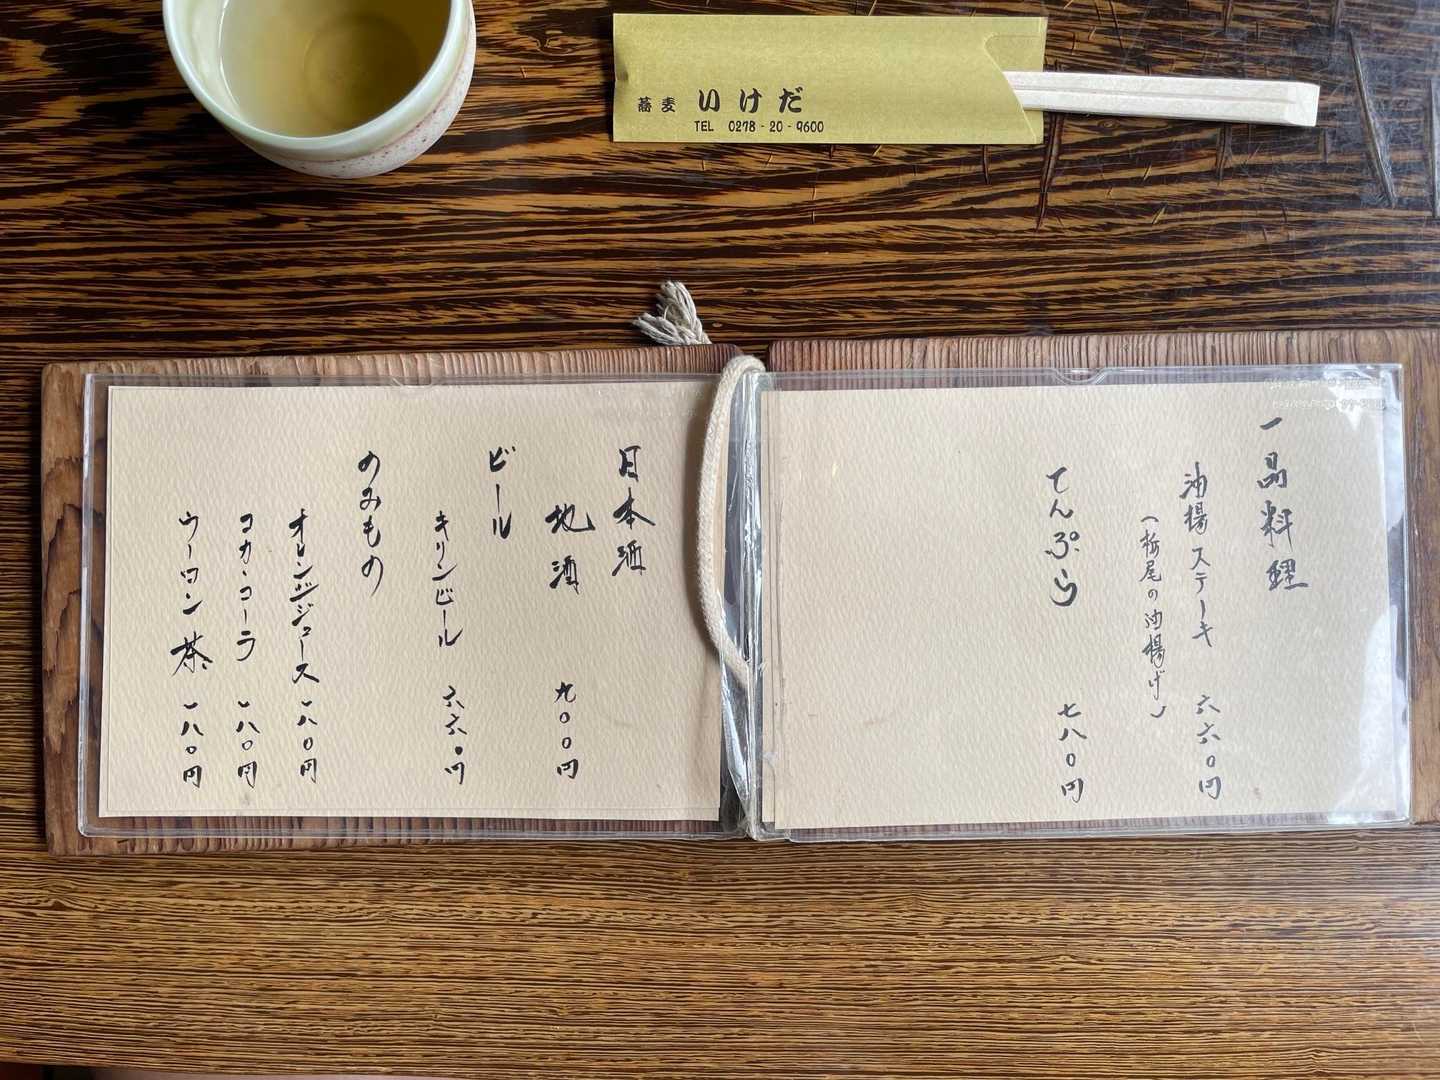 蕎麦 いけだ
TEL 0278-20-9600
一品料理
油揚ステーキ 六六〇円
(栃尾の油揚げ)
てんぷら 七八〇円
日本酒
地酒 九〇〇円
ビール
キリンビール 六六〇円
のみもの
オレンジジュース 一八〇円
コカ・コーラ 一八〇円
ウーロン茶 一八〇円